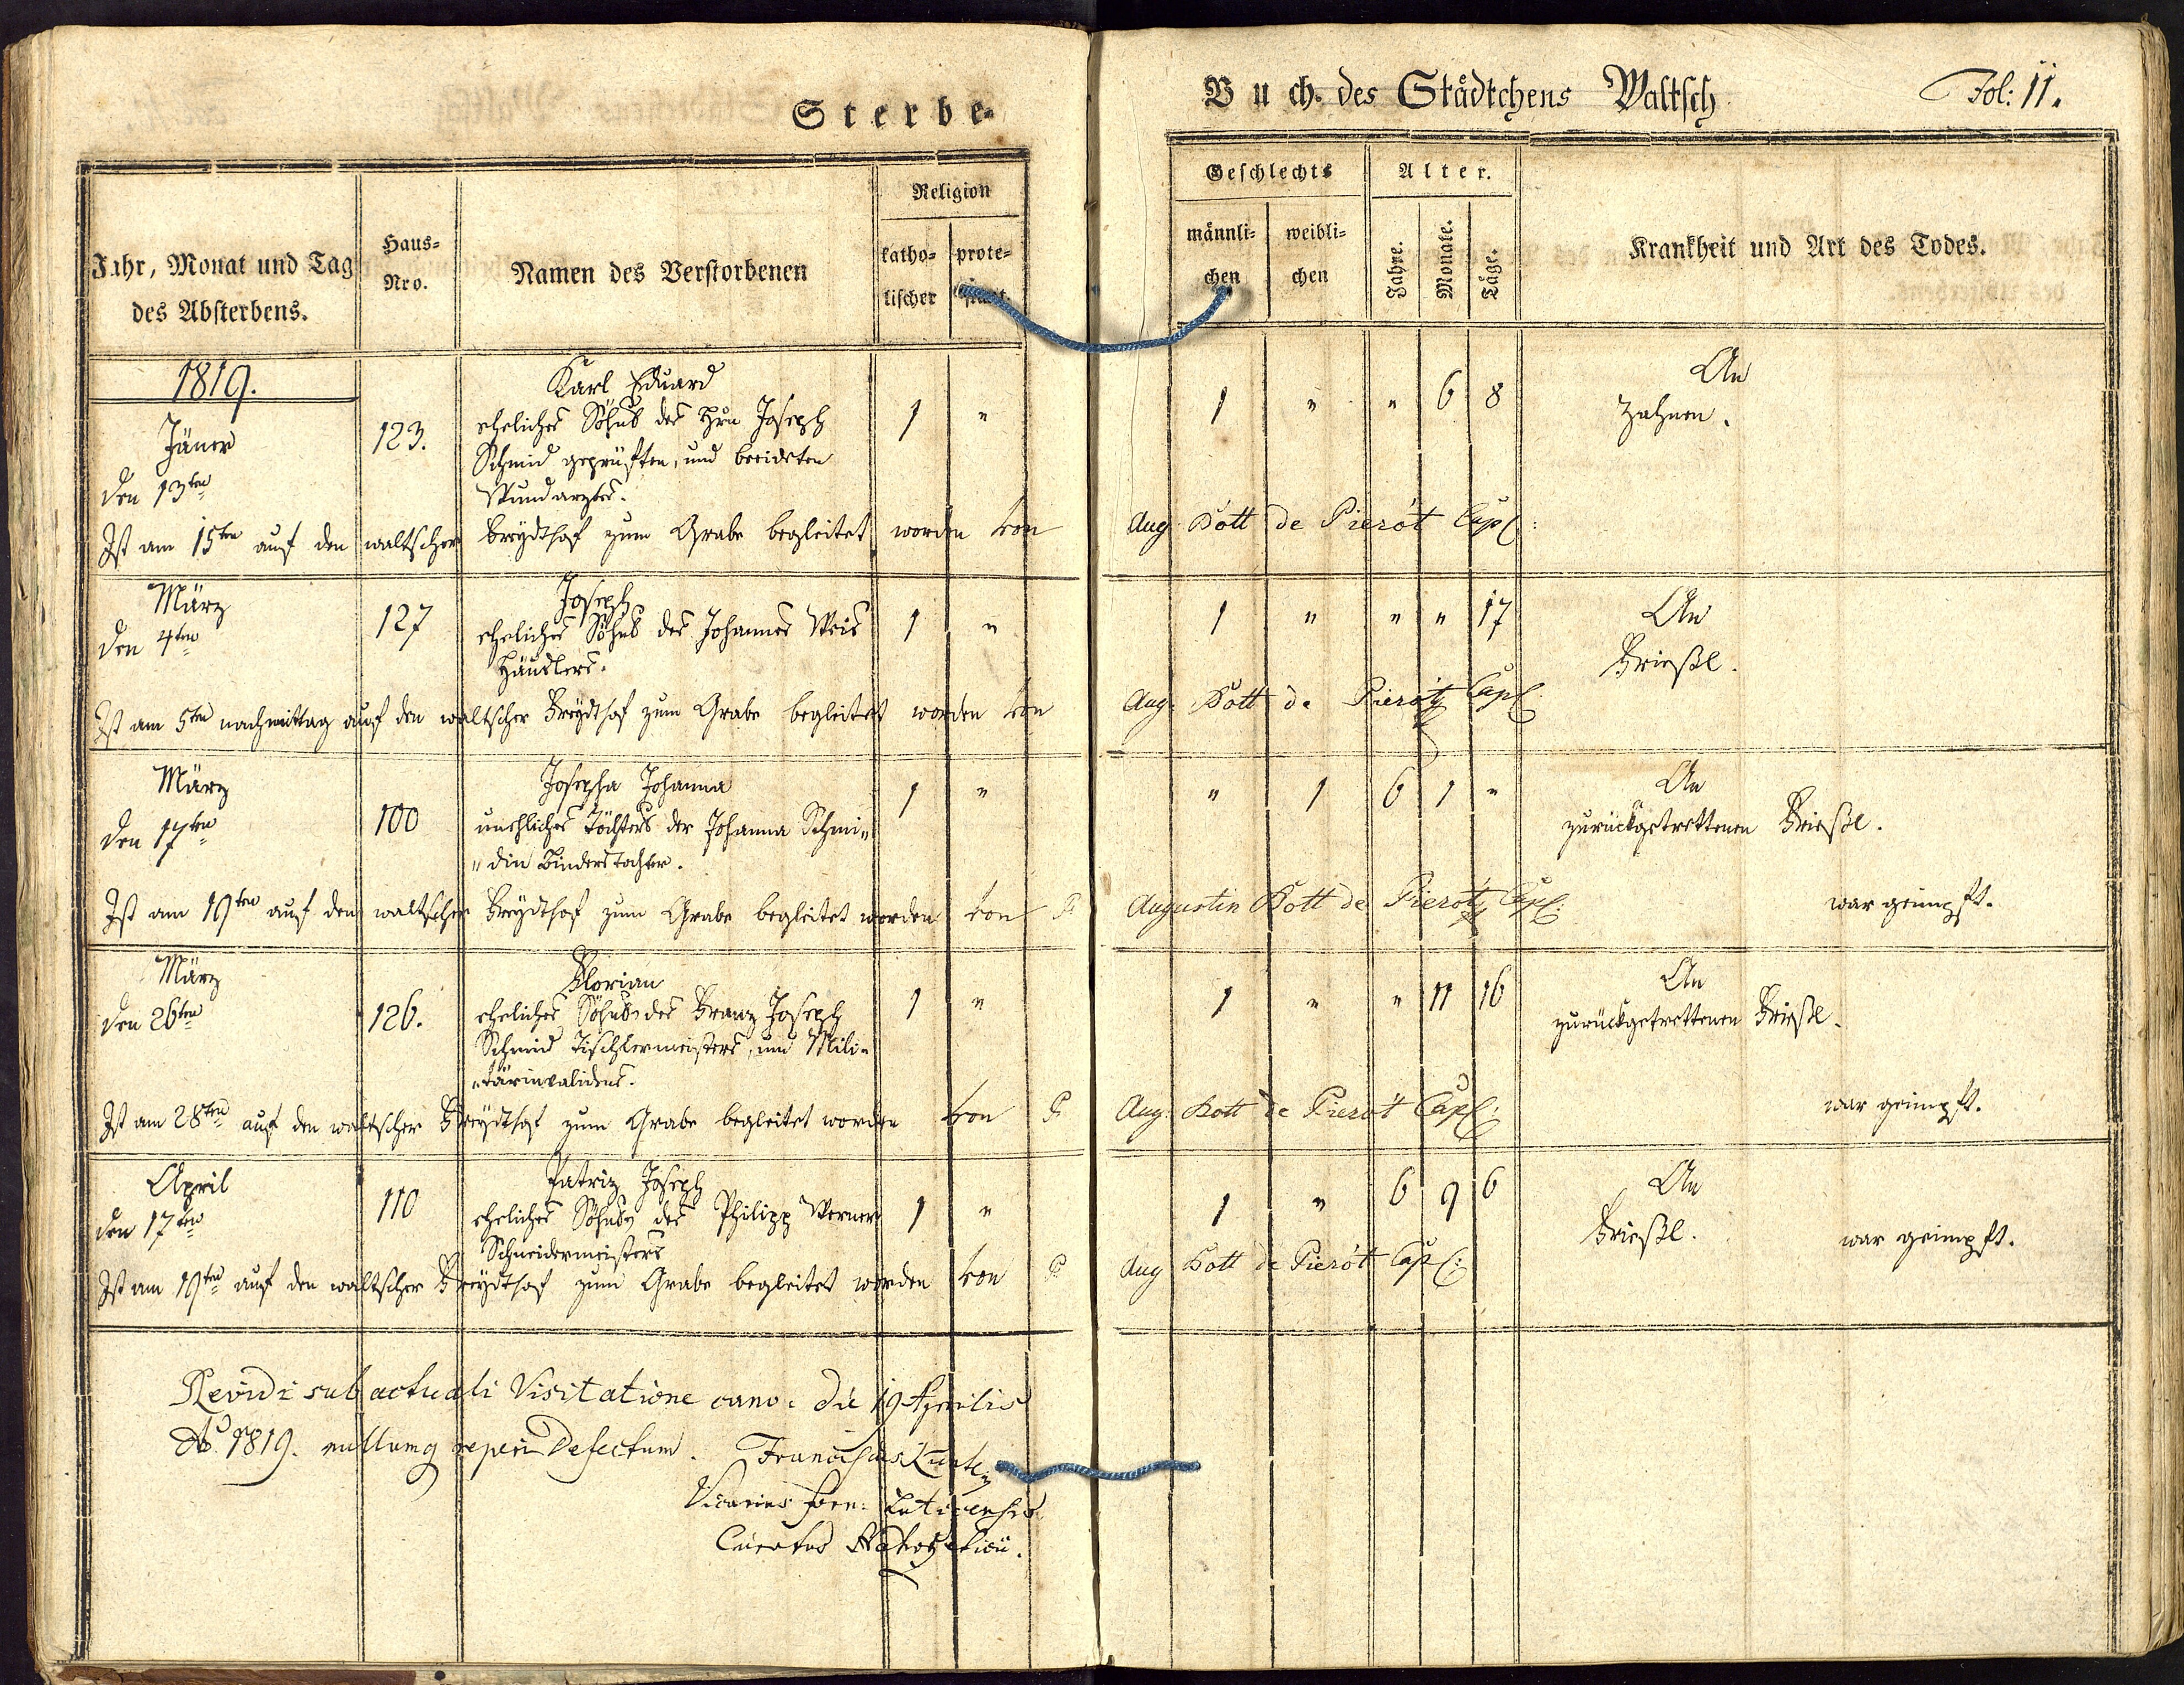 Sterbe-
Buch des Städtchens Waltsch
Fol: 11.
Jahr, Monat und Tag
des Absterbens.
Haus-
Nro.
Namen des Verstorbenen
Religion
katho-
lischer
prote-
Geschlechts
männli-
chen
weibli-
chen
Alter.
Jahre.
Monate.
Täge.
Krankheit und Art des Todes.
1819.
Jäner
den 13ten
123.
Karl Eduard
eheliches Söhnl des Hrn Joseph
Schmid geprüften, und beeideten
Wundarztes.
1 "
1 " " 6 8
An
Zahnen.
Ist am 15ten auf den waltscher Freydthof zum Grabe begleitet worden von Aug. Bott de Pierót Capl:
März
den 4ten
127
Joseph
eheliches Söhnl des Johannes Weis
Häuslers.
1 "
1 " " " 17
An
Frießl.
Ist am 5ten nachmittag auf den waltscher Freydthof zum Grabe begleitet worden von Aug. Bott de Pierót Capl
März
den 17ten
100
Josepha Johanna
unehliches Töchterl der Johanna Schmi"
"din Binderstochter.
1 "
" 1 6 1 "
An
zurückgetrettenen Frießl.
war geimpft.
Ist am 19ten auf den waltscher Freydthof zum Grabe begleitet worden von P Augustin Bott de Pierót Capl:
März
den 26ten
126.
Florian
eheliches Söhnl des Franz Joseph
Schmid Tischlermeisters, und Mili"
"tärinvalidens.
1 "
1 " " 11 16
An
zurückgetrettenen Frießl.
war geimpft.
Ist am 28ten auf den waltscher Freydthof zum Grabe begleitet worden von P Aug. Bott de Pierót Capl:
April
den 17ten
110
Patriz Joseph
eheliches Söhnl des Philipp Werner
Schneidermeisters
1 "
1 " 6 9 6
An
Frießl.
war geimpft.
Ist am 19ten auf den waltscher Freydthof zum Grabe begleitet worden von P Aug Bott de Pierót Capl:
Revidi sub actuali Visitatione cano: die 19 Aprilis
Ao 1819. nullumq reperi Defectum. Franciscus
Vicarius foren: Luticensis
Curatus